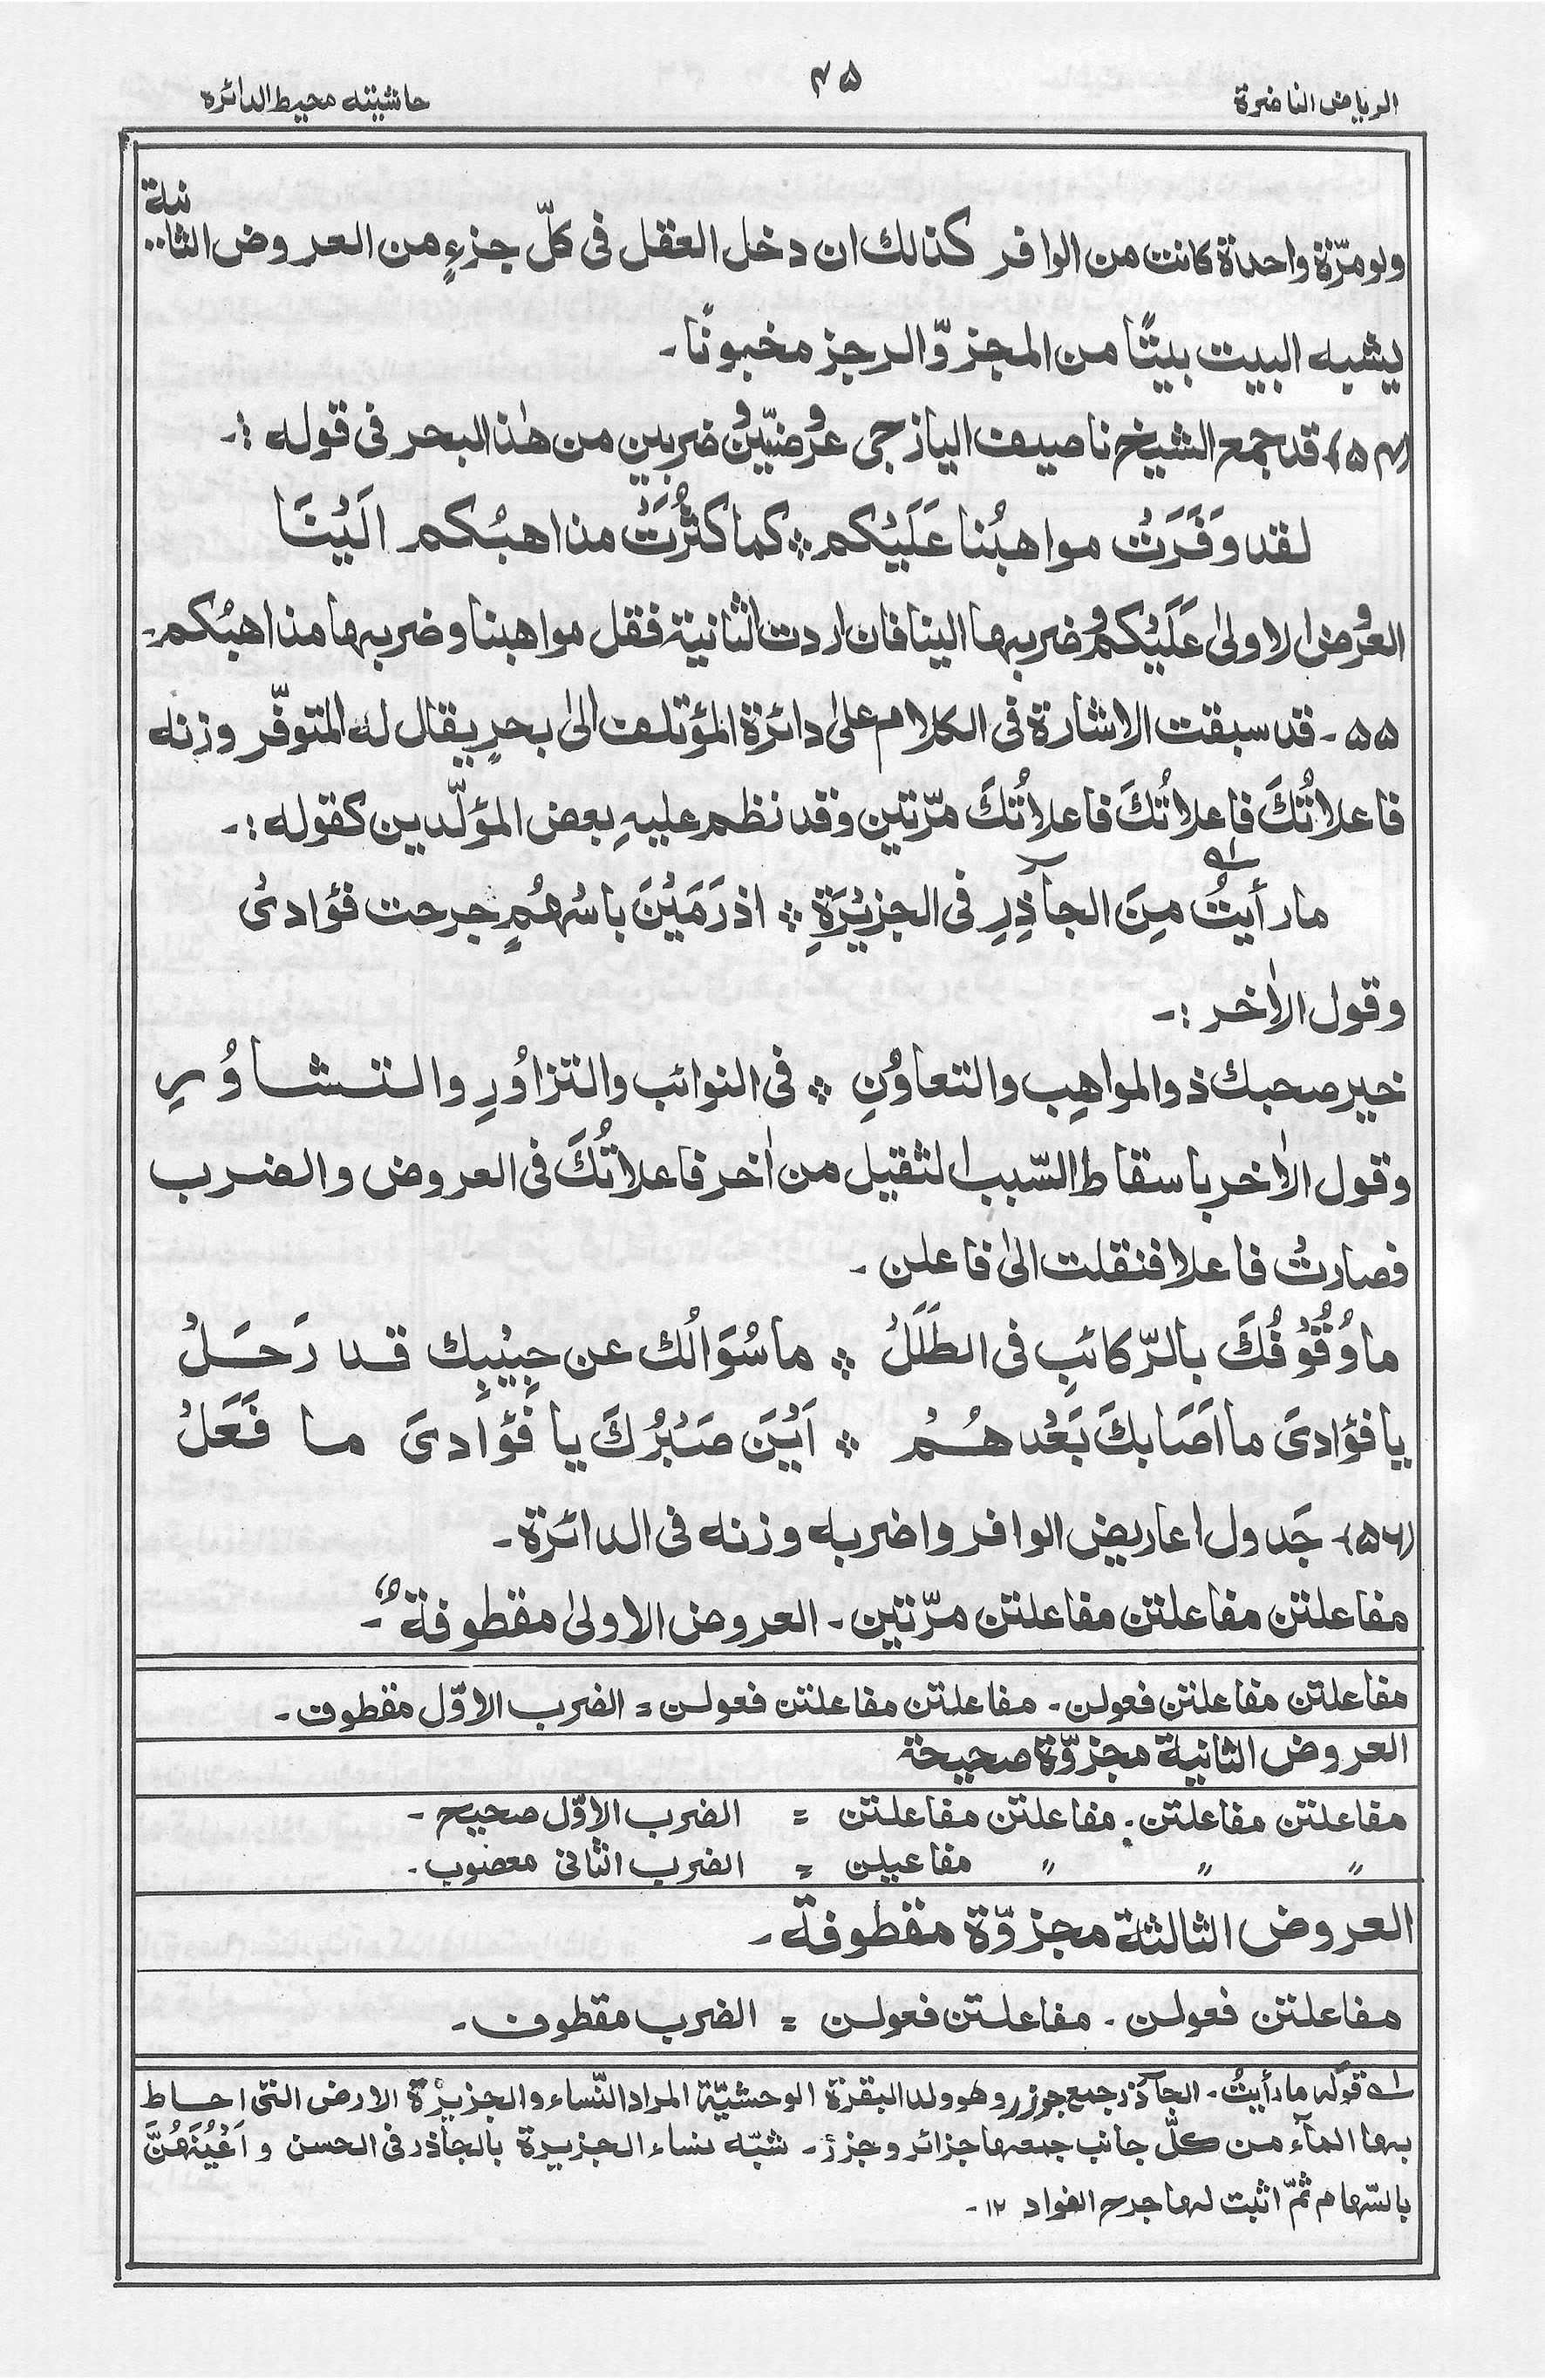 الرياض الناضرة
۴۵
حاشيته محيط الدائره
ولو مرّة واحدة كانت من الوافر كذالك ان دخل العقل فى كلّ جزءٍ من العروض الثانية
يشبه البيت بيتًا من المجزوّ الرجز مخبونًا۔
(۵۴) قد جمع الشيخ ناصيف اليازجى عروضيّن وضربين من هٰذا البحر فى قوله :۔
لقد وَفَرَتْ مواهبُنا عَلَيْكم ؞ كما كثُرَتْ مذاهبُكم اَلَيْنَا
العُروض الاولىٰ عَلَيْكمُ وضربها الينا فان اردت الثانية فقل مواهبنا وضربها مذاهبُكم۔
۵۵۔ قد سبقت الاشارة فى الكلام علىٰ دائرة المؤتلف الىٰ بحرٍ يقال له المتوفّر وزنه
فاعلاتُكَ فاعلاتُكَ فاعلاتُكَ مرّتين وقد نظم عليهِ بعض المؤلّدين كقوله :۔
ما رأيتُ مِنَ الجآذِرِ فى الجزيْرَةِ ؞ اذ رَمَيْنَ باسْهُمٍ جرحت فؤادىْ
وقول الاٰخر :۔
خير صحبك ذوالمواهِب والتعاوُنِ ؞ فى النوائب والتزاوُرِ والتشاوُرِ
وقول الاٰخر باسقاط السّبب الثقيل من اٰخر فاعلاتُكَ فى العروض والضرب
فصارتْ فاعلا فنقلت الىٰ فاعلن ۔
ما وُقُوْفُكَ بالرّكائبِ فى الطَلَلْ ؞ ما سُوَالُك عن حِبيْبِك قد رَحَلْ
يا فؤادىَ ما اَصَابكَ بَعْدهُمْ ؞ اَيْنَ صَبْرُكَ يا فَؤادىَ ما فَعَلْ
(۵۶)۔ جَدول اعاريض الوافر واضربه وزنه فى الدائرة۔
مفاعلتن مفاعلتن مفاعلتن مرّتين۔ العروض الاولىٰ مقطوفة۔
مفاعلتن مفاعلتن فعولن۔ مفاعلتن مفاعلتن فعولن = الضرب الاوّل مقطوف۔
العروض الثانية مجزوّة صحيحة
مفاعلتن مفاعلتن۔ مفاعلتن مفاعلتن = الضرب الاوّل صحيح۔
〃 〃 〃 مفاعيلن = الضرب الثانى معضوب۔
العروض الثالثة مجزوّة مقطوفة۔
مفاعلتن فعولن۔ مفاعلتن فعولن = الضرب مقطوف۔
؎۱ قوله ما رأيتُ۔ الجآذر جمع جوزر وهو ولد البقرة الوحشيّة المراد النّساء والجزيْرة الارض التى احاط
بها المآء من كلّ جانب جمعها جزائر وجزر۔ شبّه نساء الجزيرة بالجاذر فى الحسن و اَعْيُنَهُنَّ
بالسّهام ثمّ اثبت لها جرح الفواد ۱۲۔